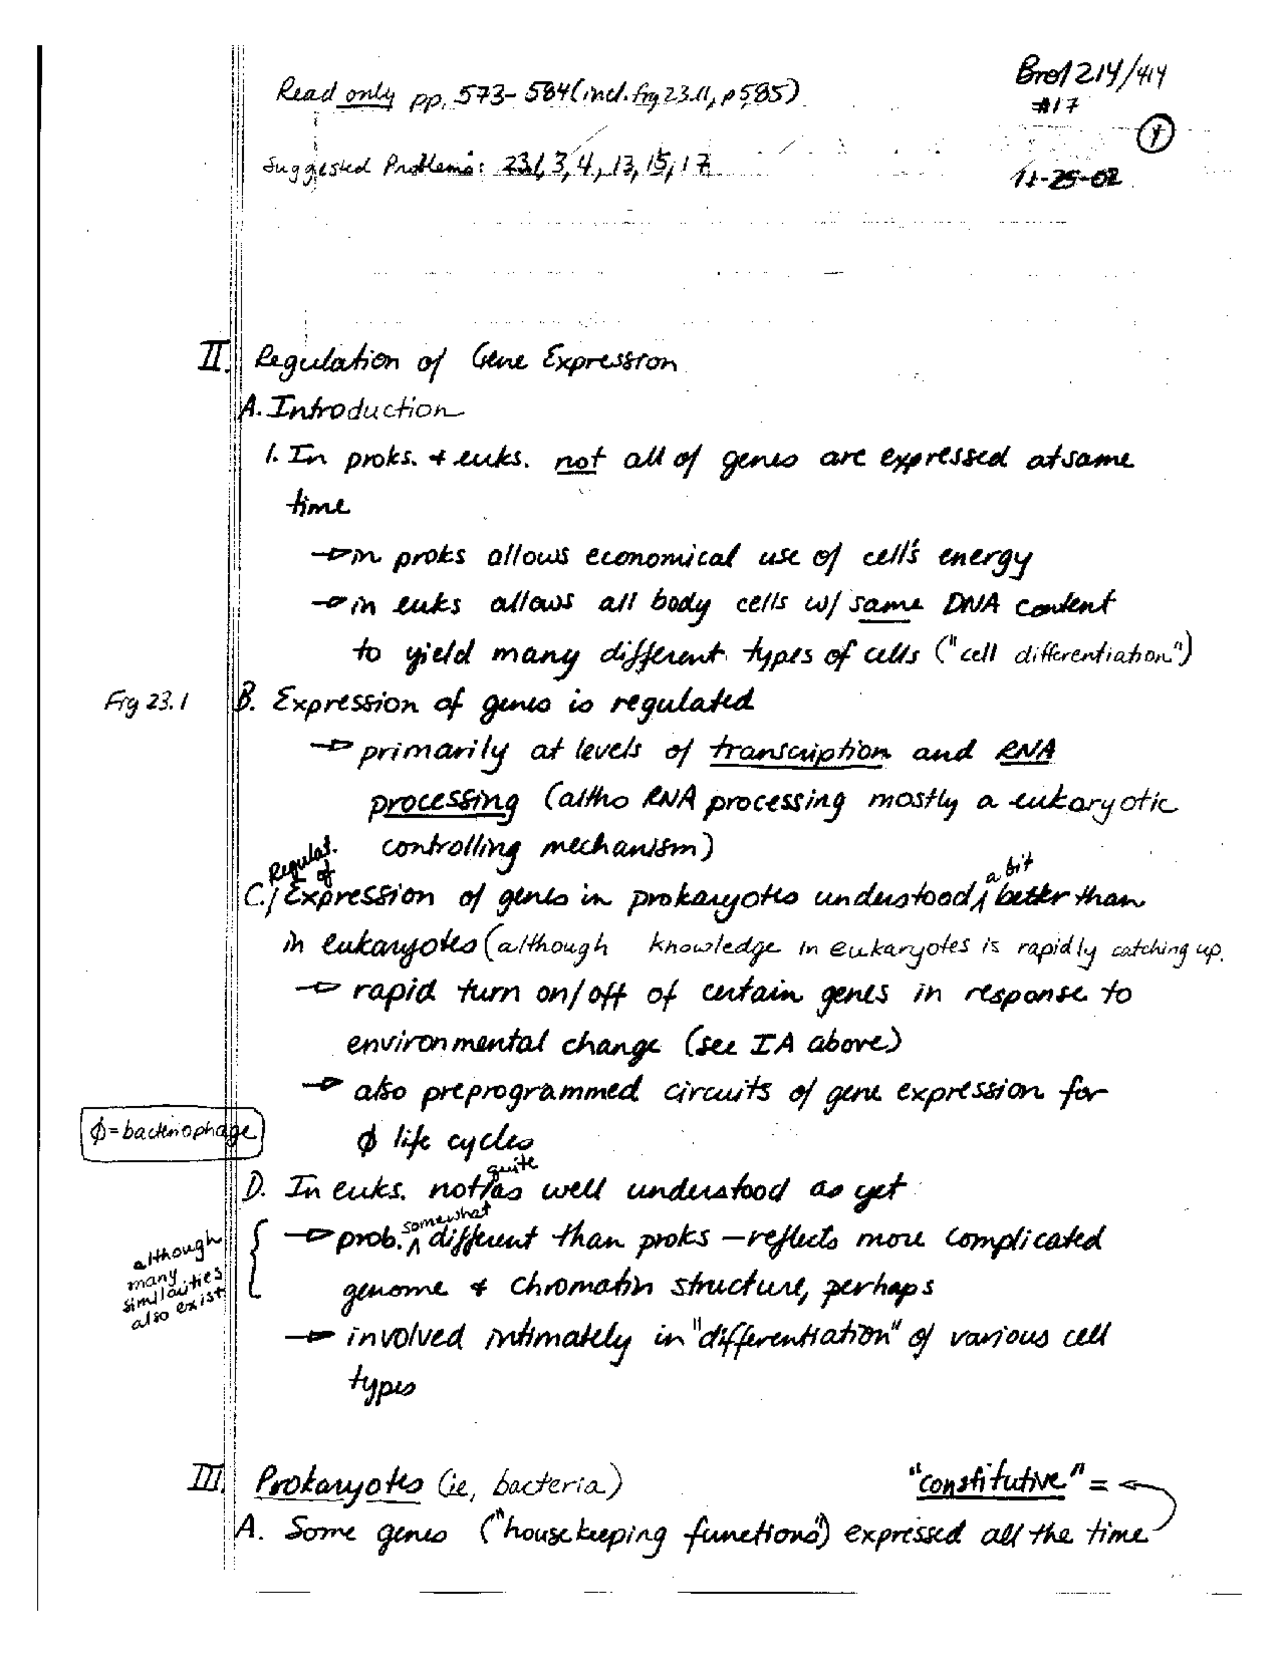 Read only pp. 573-584 (incl. Fig 23.11, p 585)
Biol 214/414
#17
1
Suggested Problems: 23.1, 3, 4, 13, 15, 17
11-25-02
II. Regulation of Gene Expression
A. Introduction
1. In proks. + euks. not all of genes are expressed at same
time
→ in proks allows economical use of cell's energy
→ in euks allows all body cells w/ same DNA content
to yield many different types of cells ("cell differentiation")
Fig 23.1
B. Expression of genes is regulated
→ primarily at levels of transcription and RNA
processing (altho RNA processing mostly a eukaryotic
controlling mechanism)
C. Regulat. of Expression of genes in prokaryotes understood a bit better than
in eukaryotes (although knowledge in eukaryotes is rapidly catching up.
→ rapid turn on/off of certain genes in response to
environmental change (see IA above)
→ also preprogrammed circuits of gene expression for
φ life cycles
φ = bacteriophage
D. In euks. not quite as well understood as yet
→ prob. somewhat different than proks – reflects more complicated
genome + chromatin structure, perhaps
although
many
similarities
also exist
→ involved intimately in "differentiation" of various cell
types
III. Prokaryotes (ie, bacteria)
"constitutive" =
A. Some genes ("housekeeping functions") expressed all the time